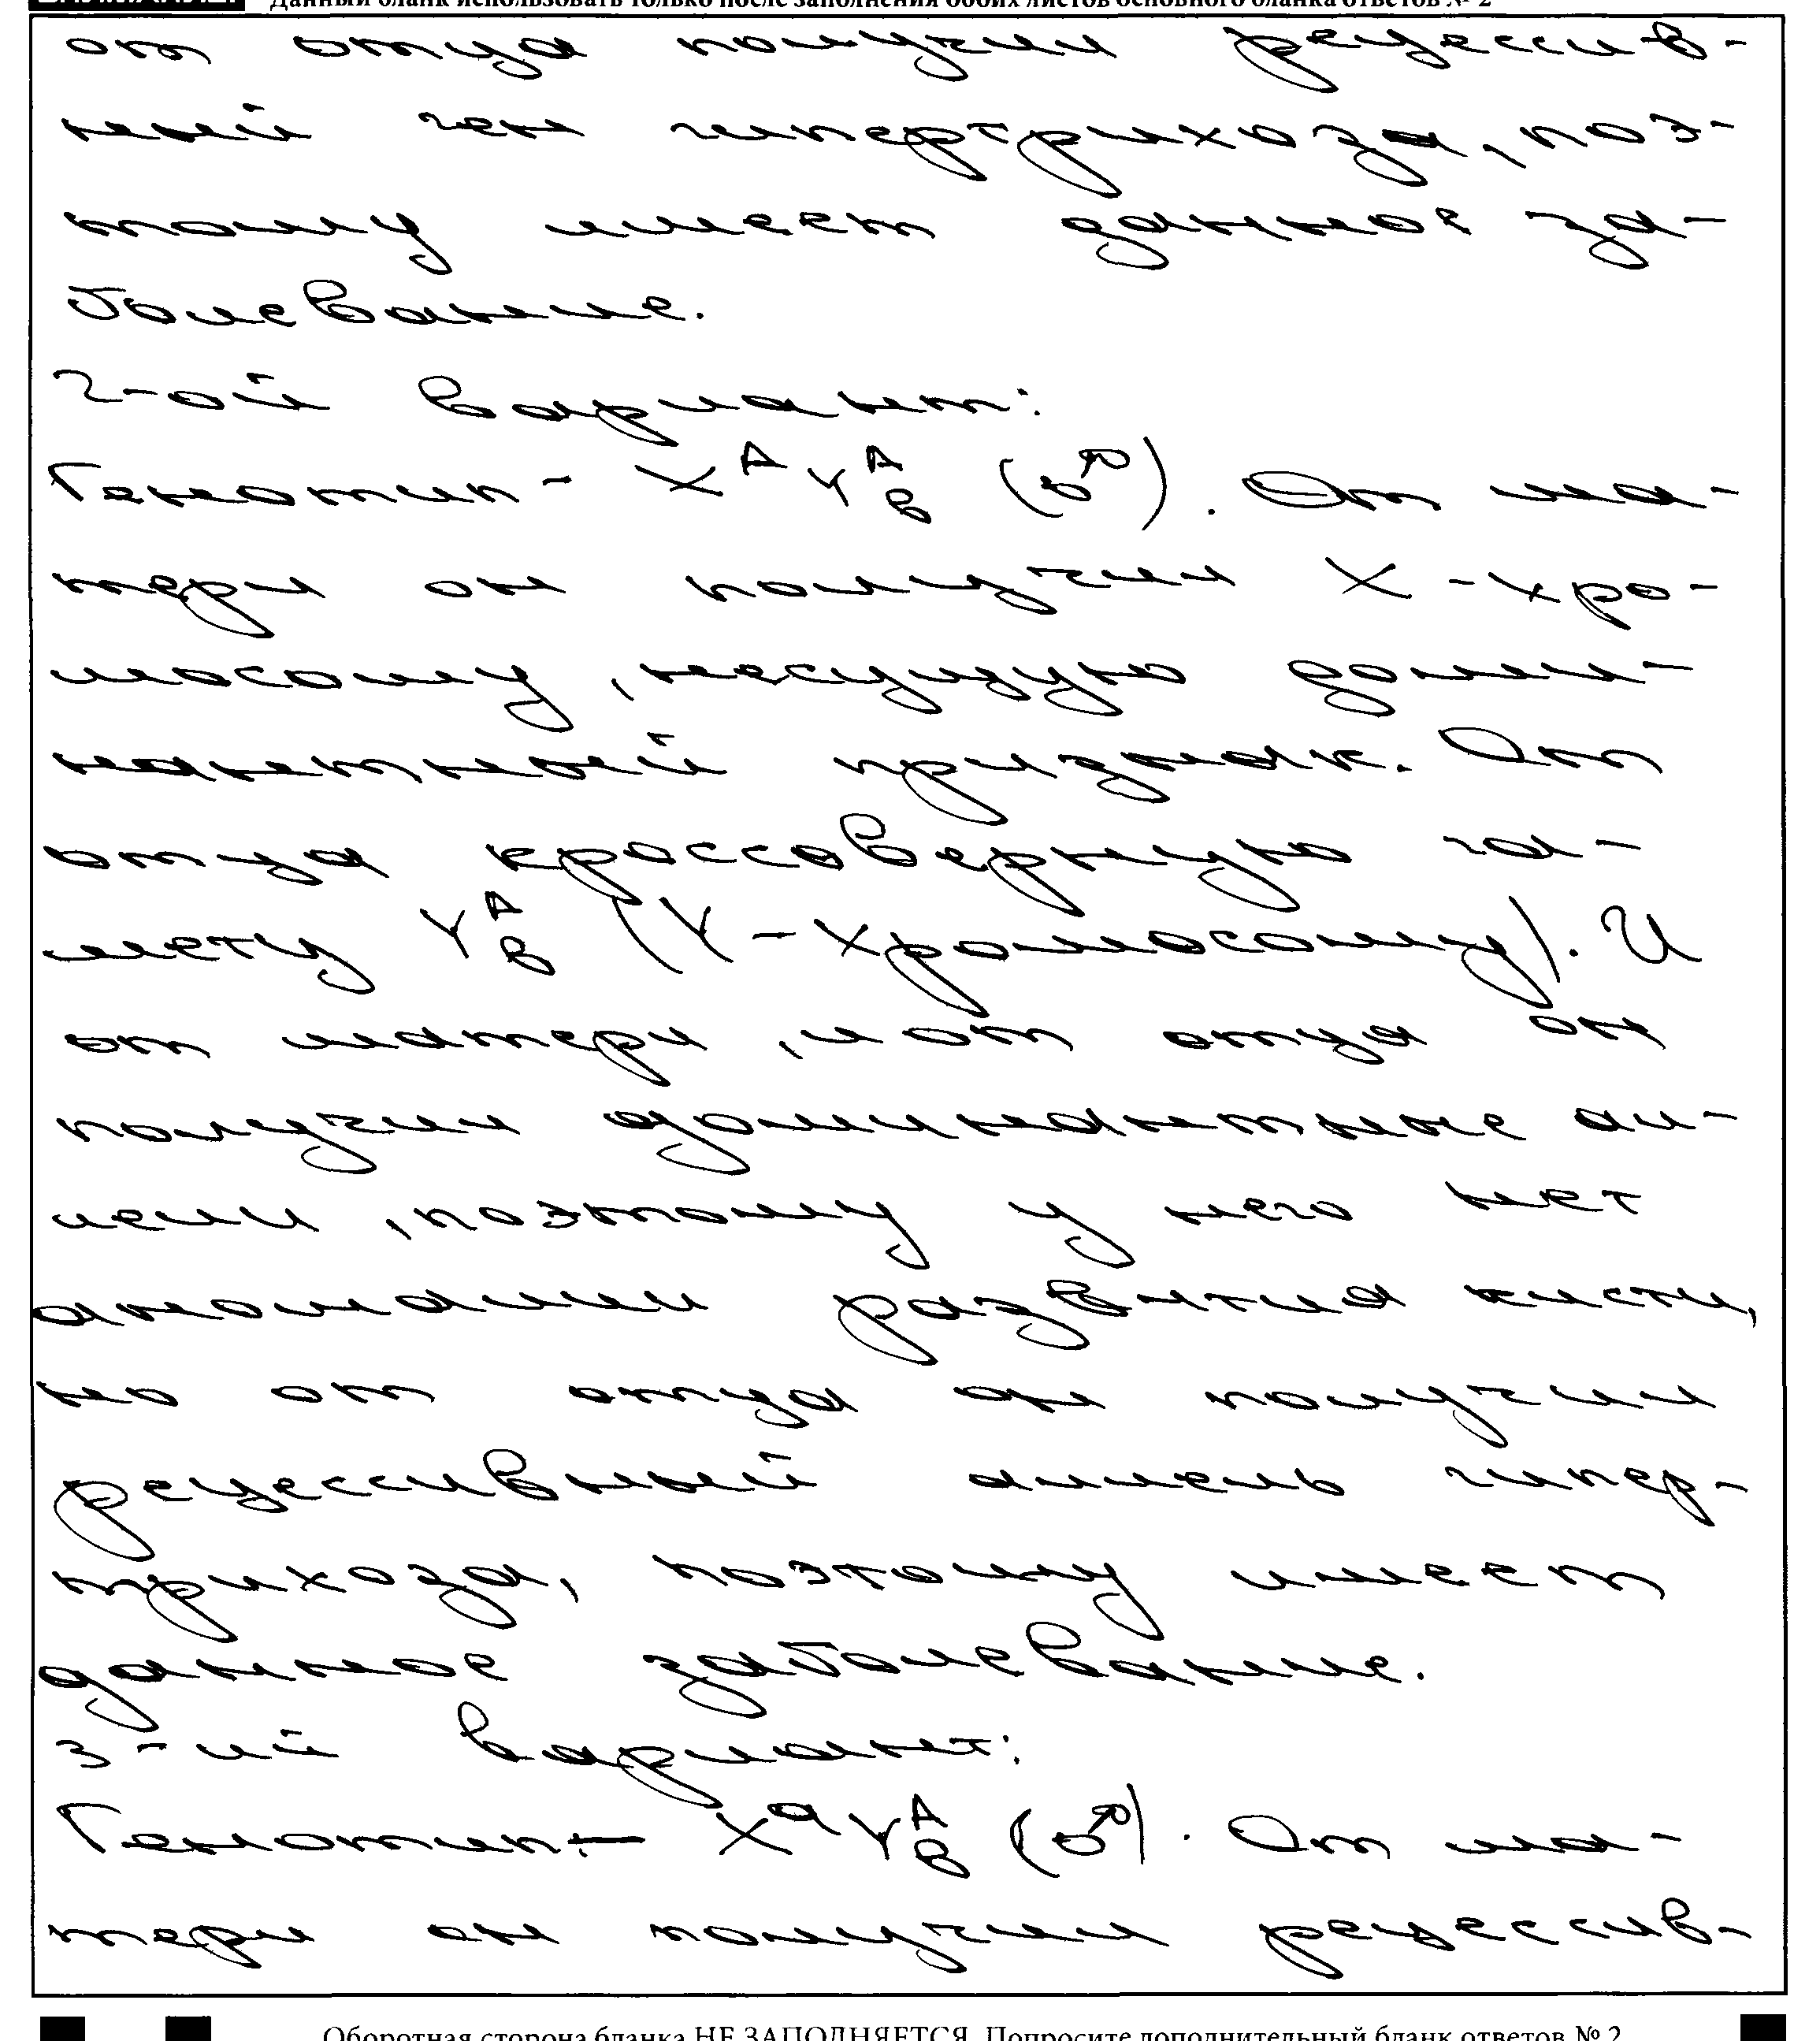 Данный бланк использовать только после заполнения обоих листов основного бланка ответов № 2
от отца получил рецессив-
ный ген гипертрихоза, поэ-
тому имеет данное за-
болевание.
2-ой вариант:
Генотип - X^A Y^A_B (♂). От ма-
тери он получил X - хро-
мосому, несущую доми-
нантный признак. От
отца кроссоверную га-
мету Y^A_B (Y - хромосому). И
от матери, и от отца он
получил доминантные ал-
лели, поэтому у него нет
аномалии развития кисти,
но от отца он получил
рецессивный аллель гипер-
трихоза, поэтому имеет
данное заболевание.
3-ий вариант:
Генотип - X^a Y^A_B (♂). От ма-
тери он получил рецессив-
Оборотная сторона бланка НЕ ЗАПОЛНЯЕТСЯ. Попросите дополнительный бланк ответов № 2